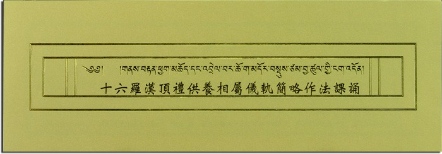 ༄༅། །གནས་བརྟན་ཕྱག་མཆོད་དང་འབྲེལ་བར་ཆོ་ག་མདོར་བསྡུས་ཙམ་བྱ་ཚུལ་གྱི་ངག་འདོན།
十六羅漢頂禮供養相屬儀軌簡略作法課誦